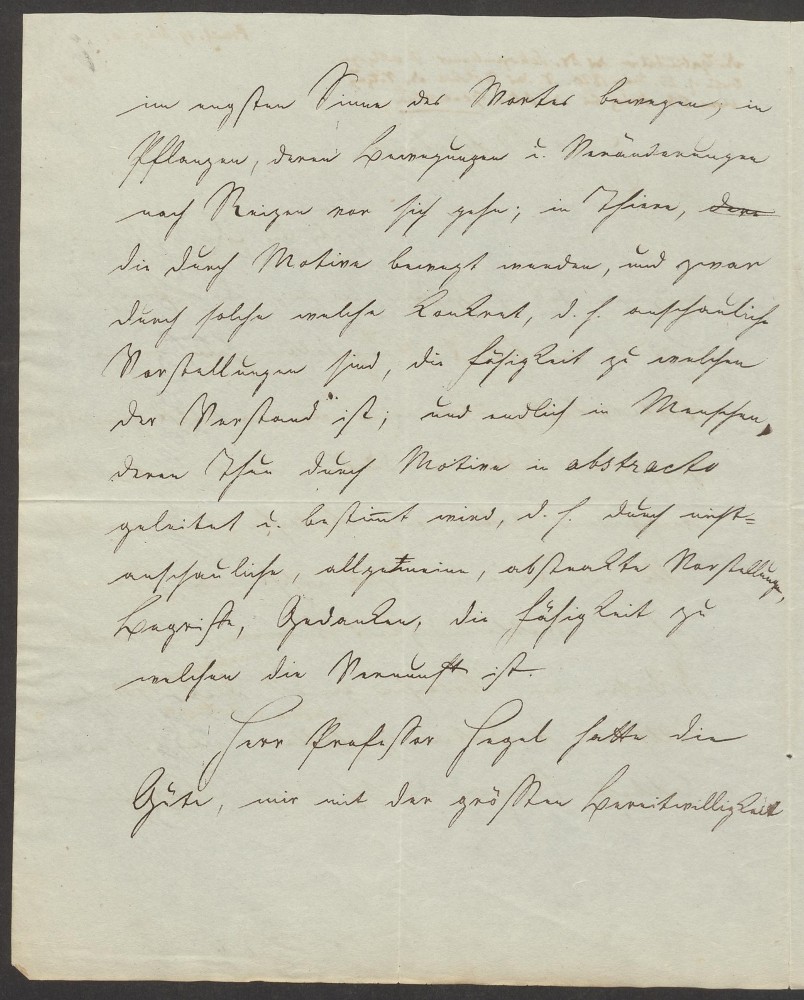 im engsten Sinne des Wortes bewegen, in
Pflanzen, deren Bewegungen u. Veränderungen
nach Reizen vor sich gehn; in Thiere, dere
die durch Motive bewegt werden, und zwar
durch solche welche konkret, d. h. anschauliche
Vorstellungen sind, die Fähigkeit zu welchen
der Verstand ist; und endlich in Menschen,
deren Thun durch Motive in abstracto
geleitet u. bestimmt wird, d. h. durch nicht=
anschauliche, allgemeine, abstrakte Vorstellungen,
Begriffe, Gedanken, die Fähigkeit zu
welchen die Vernunft ist.
Herr Professor Hegel hatte die
Güte, mir mit der größten Bereitwilligkeit